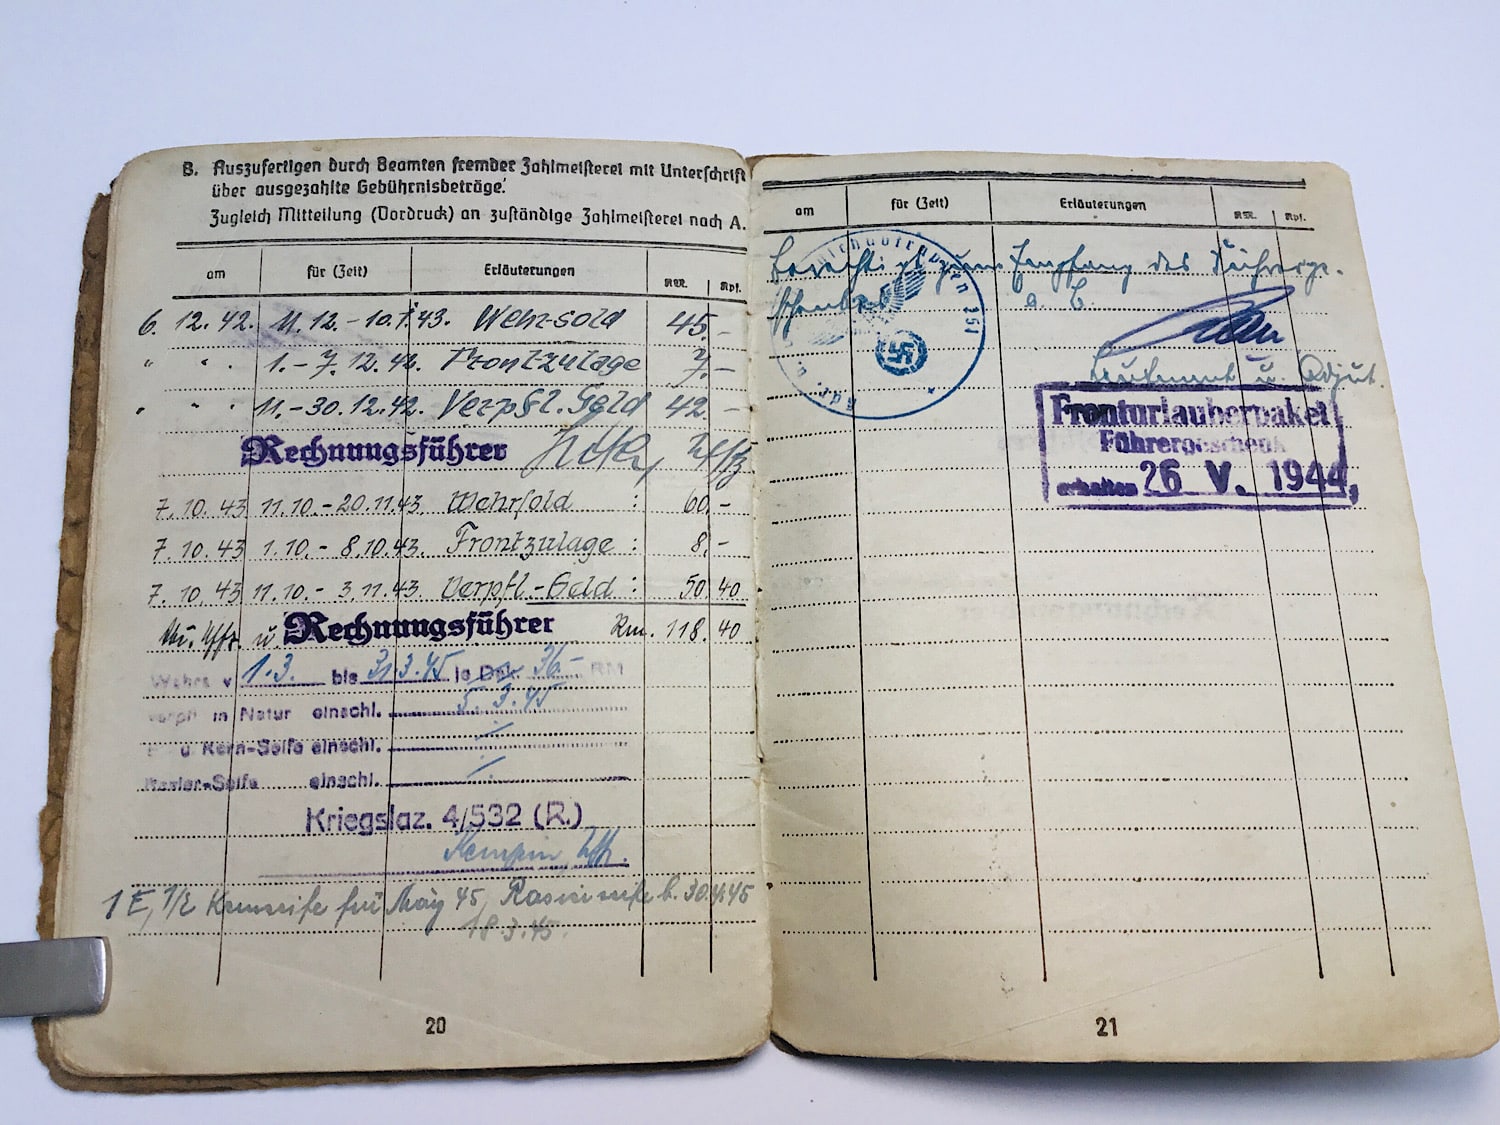 B. Auszufertigen durch Beamten fremder Zahlmeisterei mit Unterschrift
über ausgezahlte Gebührnisbeträge.
Zugleich Mitteilung (Vordruck) an zuständige Zahlmeisterei nach A.
am für (Zeit) Erläuterungen RM. Rpf.
6. 12. 42. 11. 12. - 10. 1. 43. Wehrsold 45 -
" " . 1. - 7. 12. 42. Frontzulage 7. -
" " . 11. - 30. 12. 42. Verpfl. Geld 42 -
Rechnungsführer
7. 10. 43 11. 10. - 20. 11. 43. Wehrsold : 60 -
7. 10. 43 1. 10. - 8. 10. 43. Frontzulage : 8. -
7. 10. 43 11. 10. - 3. 11. 43. Verpfl. - Geld : 50 40
u. Rechnungsführer Rm. 118. 40
Wehrs v 1. 3. bis 31. 3. 45 36.- RM
Verpfl in Natur einschl. 5. 3. 45
u Kern-Seife einschl.
Rasier-Seife einschl.
Kriegslaz. 4/532 (R.)
1 E, 1/2 Kernseife für May 45, Rasierseife b. 30. 4. 45
18. 3. 45.
20
am für (Zeit) Erläuterungen RM. Rpf.
Berechtigt zum Empfang des Führerge-
schenkes
Leutnant u. Adjut.
Fronturlauberpaket
Führergeschenk
erhalten 26 V. 1944
21